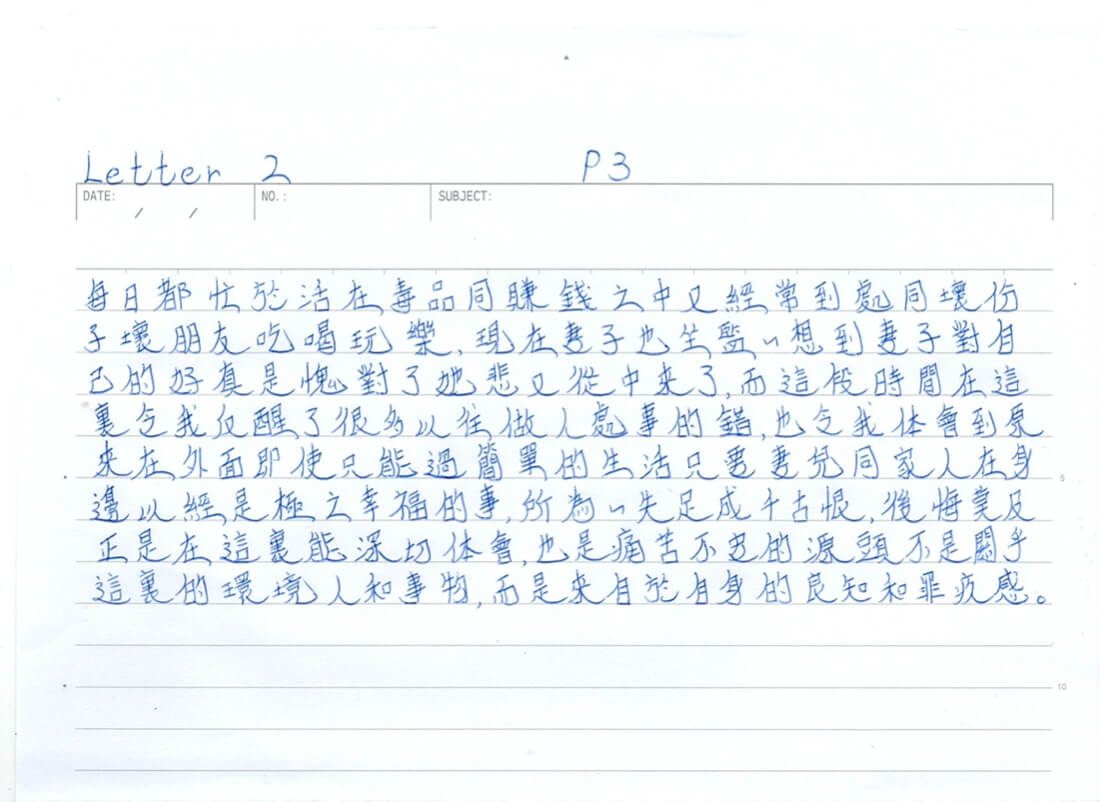 Letter 2 P3
DATE: / / NO.: SUBJECT:
每日都忙於活在毒品同賺錢之中又經常到處同壞份
子壞朋友吃喝玩樂,現在妻子也坐監,想到妻子對自
己的好真是愧對了她悲又從中来了,而這段時間在這
裏令我反醒了很多以往做人處事的錯,也令我体會到原
來在外面即使只能過簡單的生活只要妻兒同家人在身
邊以經是極之幸福的事,所為一失足成千古恨,後悔莫及
正是在這裏能深切体會,也是痛苦不安的源頭不是關乎
這裏的環境人和事物,而是来自於自身的良知和罪疚感。
5
10